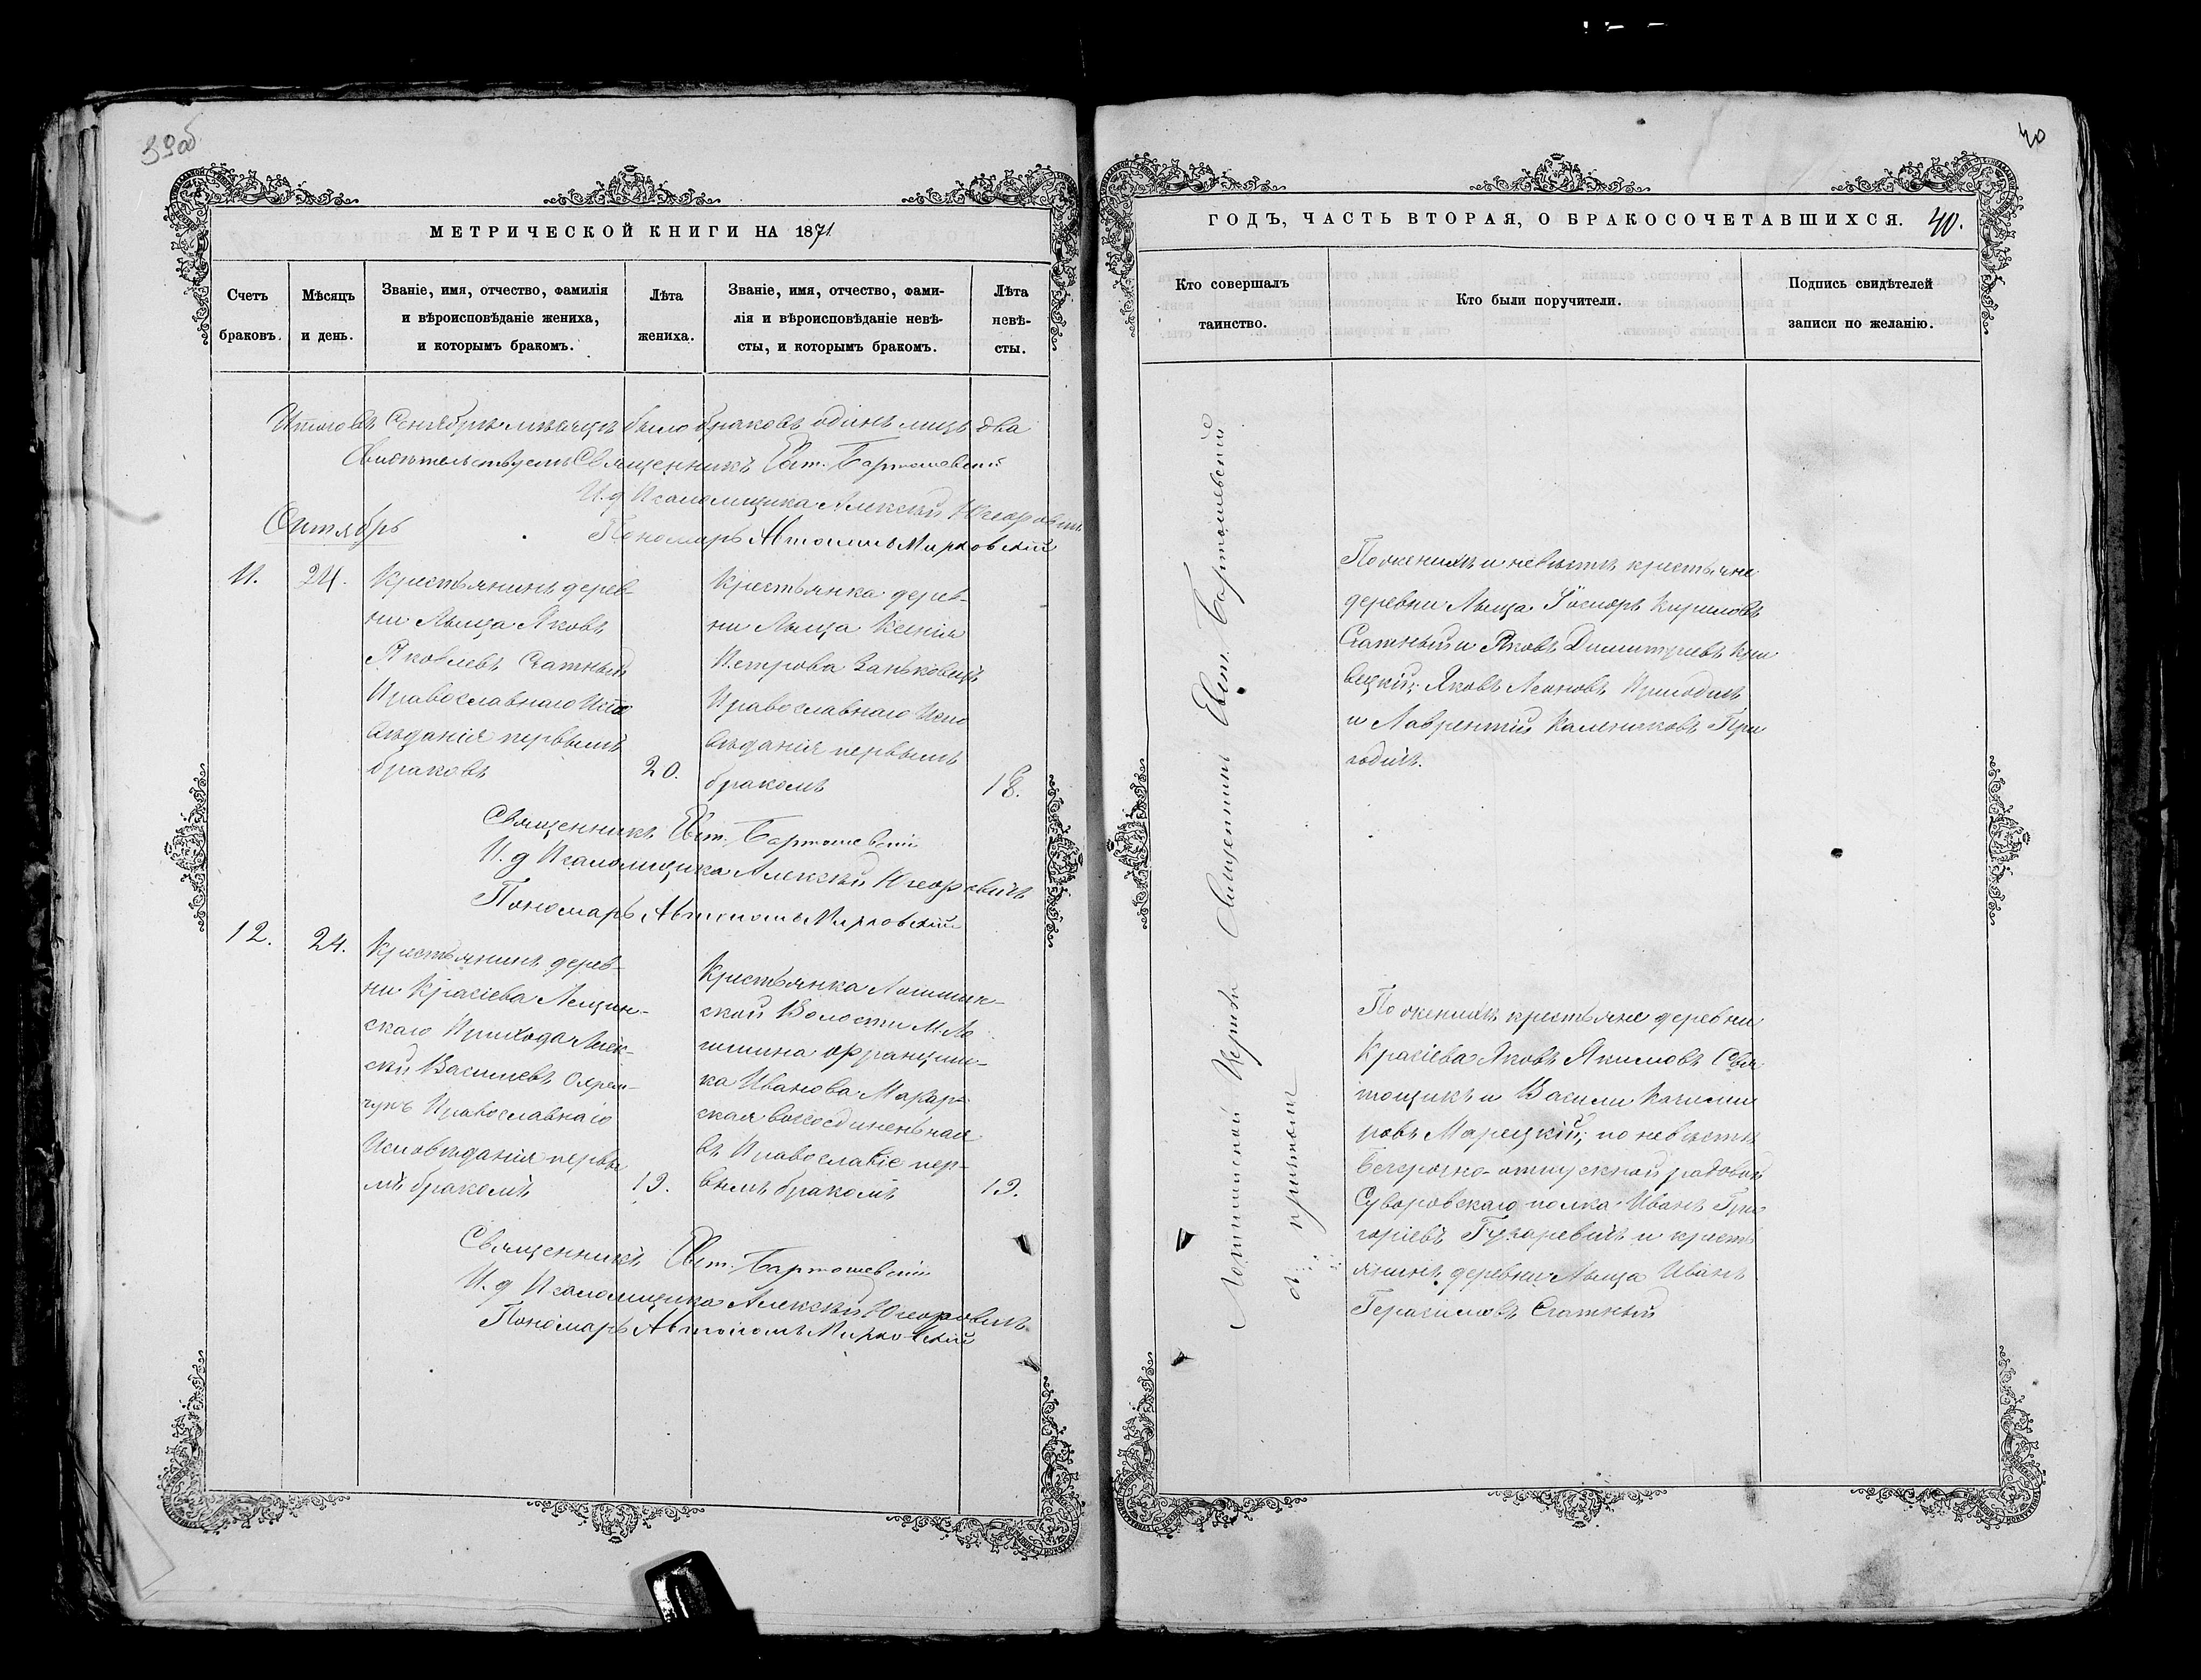 39об
МЕТРИЧЕСКОЙ КНИГИ НА 1871
Счетъ браковъ.
Мѣсяцъ и день.
Званіе, имя, отчество, фамилія
и вѣроисповѣданіе жениха,
и которымъ бракомъ.
Лѣта жениха.
Званіе, имя, отчество, фами-
лія и вѣроисповѣданіе невѣ-
сты, и которымъ бракомъ.
Лѣта невѣ-
сты.
Итого въ Сентябрѣ мѣсяцѣ было браковъ одинъ лицъ два
Свидѣтельствуемъ Священникъ Евст. Бартошевскій
И. д Псаломщика Алексѣй
Пономарь Автономъ Мирковскій
Октябрь
11.
24.
Крестьянинъ дерев-
ни Лыща Яковъ
Яковлевъ Статный
Православнаго Испо
вѣданія первымъ
браковъ
20.
Крестьянка дерев-
ни Лыща Ксенія
Петрова Заньковецъ
Православнаго Испо
вѣданія первымъ
бракомъ
18.
Священникъ Евст. Бартошевскій
И. д Псаломщика Алексѣй
Пономарь Автономъ Мирковскій
12.
24.
Крестьянинъ дерев-
ни Красіева Лещин-
скаго Прихода Алек-
сѣй Василіевъ
Православнаго
Исповѣданія первы
мъ бракомъ
19.
Крестьянка Логишин-
ской Волости М. Ло
гишина Францишка
ка Иванова Макар-
ская возсоединенная
въ Православіе пер-
вымъ бракомъ
19.
Священникъ Евст. Бартошевскій
И. д Псаломщика Алексѣй
Пономарь Автономъ Мирковскій
40
ГОДЪ, ЧАСТЬ ВТОРАЯ, О БРАКОСОЧЕТАВШИХСЯ. 40.
Кто совершалъ
таинство.
Кто были поручители.
Подпись свидѣтелей
записи по желанію.
Логишинской Церкви Священникъ Евст. Бартошевскій
съ причтомъ
По женихѣ и невѣстѣ крестьяне
деревни Лыща Кириловъ
Статный и Яковъ Димитріевъ Кри
вецкій; Яковъ Приходичъ
и Лаврентій При
ходичъ.
По женихѣ крестьяне деревни
Красіева Яковъ Якимовъ Свя
тощикъ и Василій Казими
ровъ Марецкій; по невѣстѣ
безсрочно-отпускной рядовой
Суворовскаго полка Иванъ Гри
горіевъ и кресть
янинъ деревни Лыща Иванъ
Герасимовъ Статный